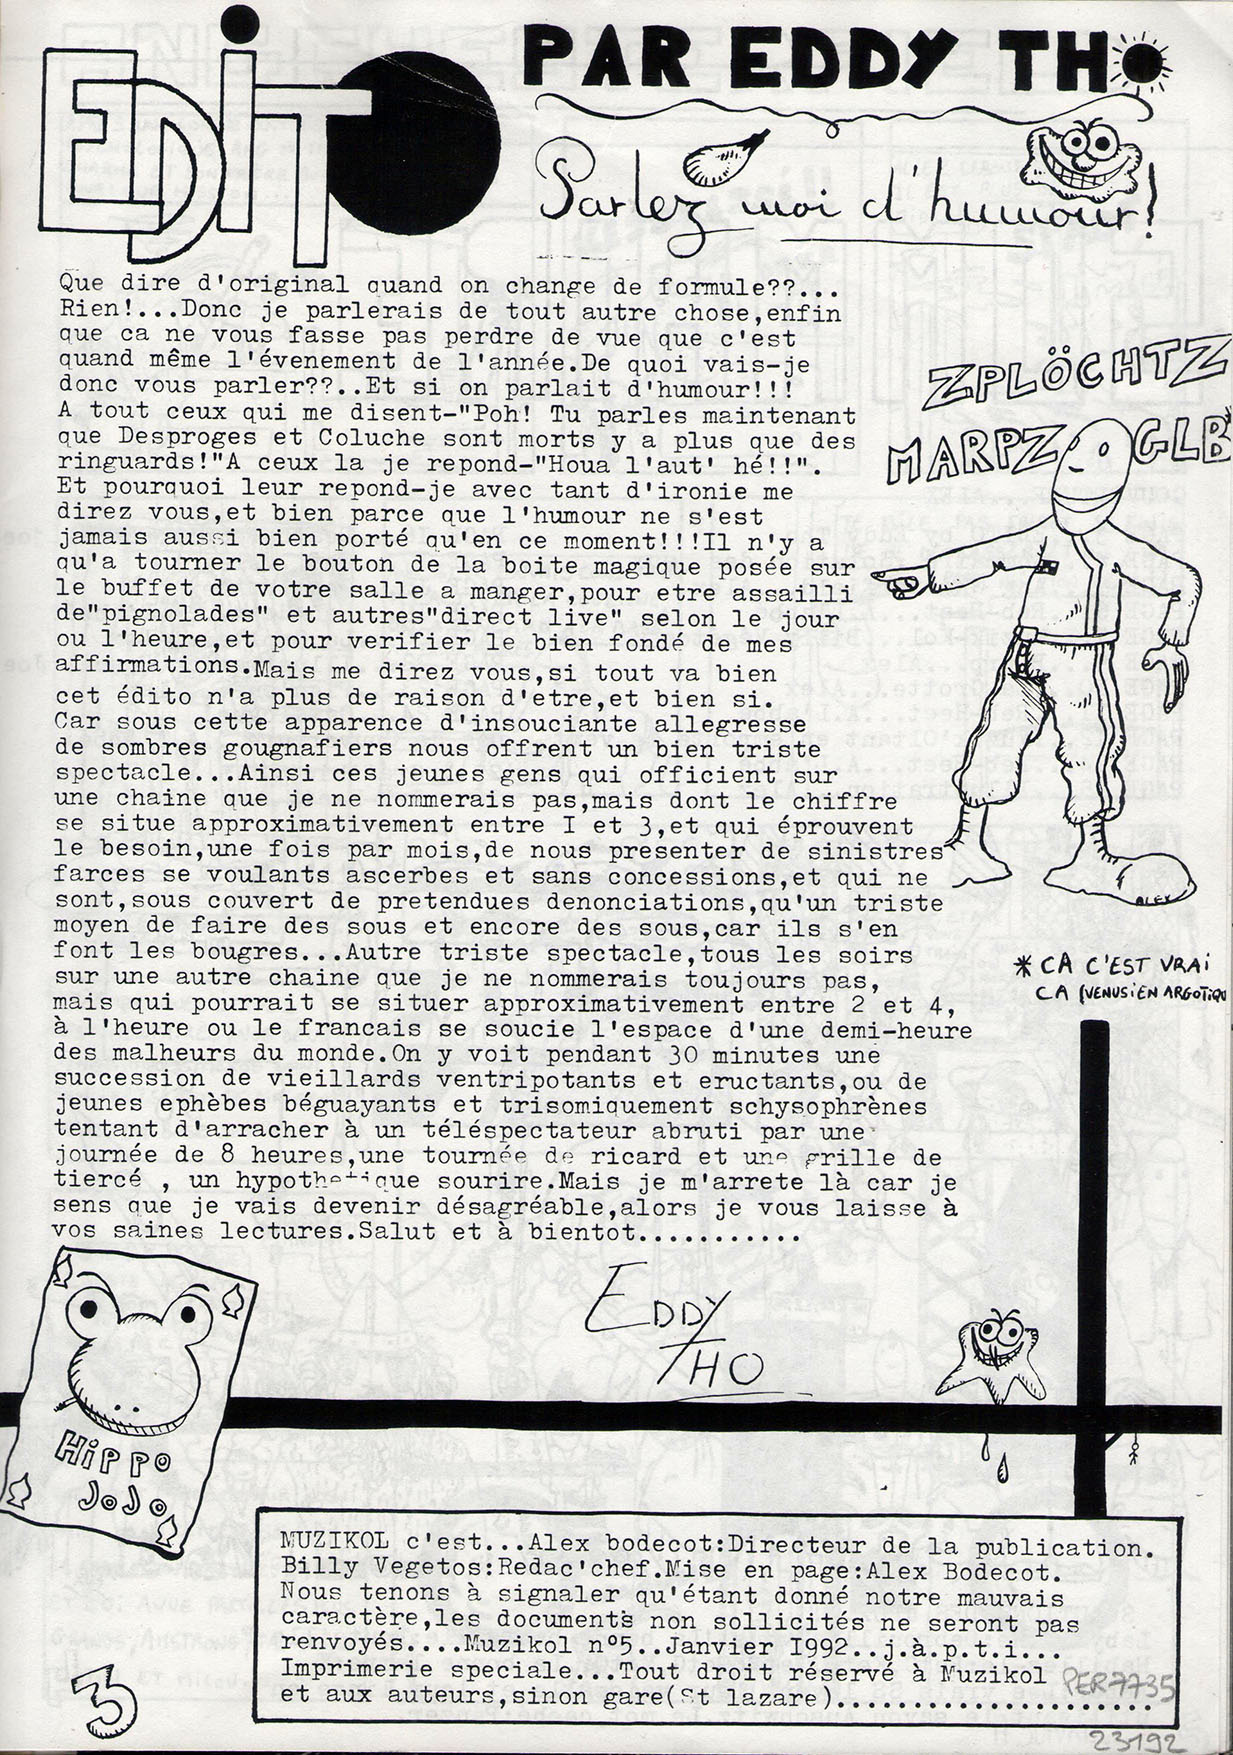 EDITO
PAR EDDY THO
Parlez moi d'humour!
Que dire d'original quand on change de formule??...
Rien!...Donc je parlerais de tout autre chose,enfin
que ca ne vous fasse pas perdre de vue que c'est
quand même l'évenement de l'année.De quoi vais-je
donc vous parler??..Et si on parlait d'humour!!!
A tout ceux qui me disent-"Poh! Tu parles maintenant
que Desproges et Coluche sont morts y a plus que des
ringuards!"A ceux la je repond-"Houa l'aut' hé!!".
Et pourquoi leur repond-je avec tant d'ironie me
direz vous,et bien parce que l'humour ne s'est
jamais aussi bien porté qu'en ce moment!!!Il n'y a
qu'a tourner le bouton de la boite magique posée sur
le buffet de votre salle a manger,pour etre assailli
de"pignolades" et autres"direct live" selon le jour
ou l'heure,et pour verifier le bien fondé de mes
affirmations.Mais me direz vous,si tout va bien
cet édito n'a plus de raison d'etre,et bien si.
Car sous cette apparence d'insouciante allegresse
de sombres gougnafiers nous offrent un bien triste
spectacle...Ainsi ces jeunes gens qui officient sur
une chaine que je ne nommerais pas,mais dont le chiffre
se situe approximativement entre I et 3,et qui éprouvent
le besoin,une fois par mois,de nous presenter de sinistres
farces se voulants ascerbes et sans concessions,et qui ne
sont,sous couvert de pretendues denonciations,qu'un triste
moyen de faire des sous et encore des sous,car ils s'en
font les bougres...Autre triste spectacle,tous les soirs
sur une autre chaine que je ne nommerais toujours pas,
mais qui pourrait se situer approximativement entre 2 et 4,
à l'heure ou le francais se soucie l'espace d'une demi-heure
des malheurs du monde.On y voit pendant 30 minutes une
succession de vieillards ventripotants et eructants,ou de
jeunes ephèbes béguayants et trisomiquement schysophrènes
tentant d'arracher à un téléspectateur abruti par une
journée de 8 heures,une tournée de ricard et une grille de
tiercé , un hypothetique sourire.Mais je m'arrete là car je
sens que je vais devenir désagréable,alors je vous laisse à
vos saines lectures.Salut et à bientot...........
EDDY
THO
ZPLÖCHTZ
MARPZ GLB*
ALEX
* CA C'EST VRAI
CA (VENUSIEN ARGOTIQU
HIPPO
JOJO
MUZIKOL c'est...Alex bodecot:Directeur de la publication.
Billy Vegetos:Redac'chef.Mise en page:Alex Bodecot.
Nous tenons à signaler qu'étant donné notre mauvais
caractère,les documents non sollicités ne seront pas
renvoyés....Muzikol n°5..Janvier I992..j.à.p.t.i...
Imprimerie speciale...Tout droit réservé à Muzikol
et aux auteurs,sinon gare(St lazare)......................
PER7735
23192
3